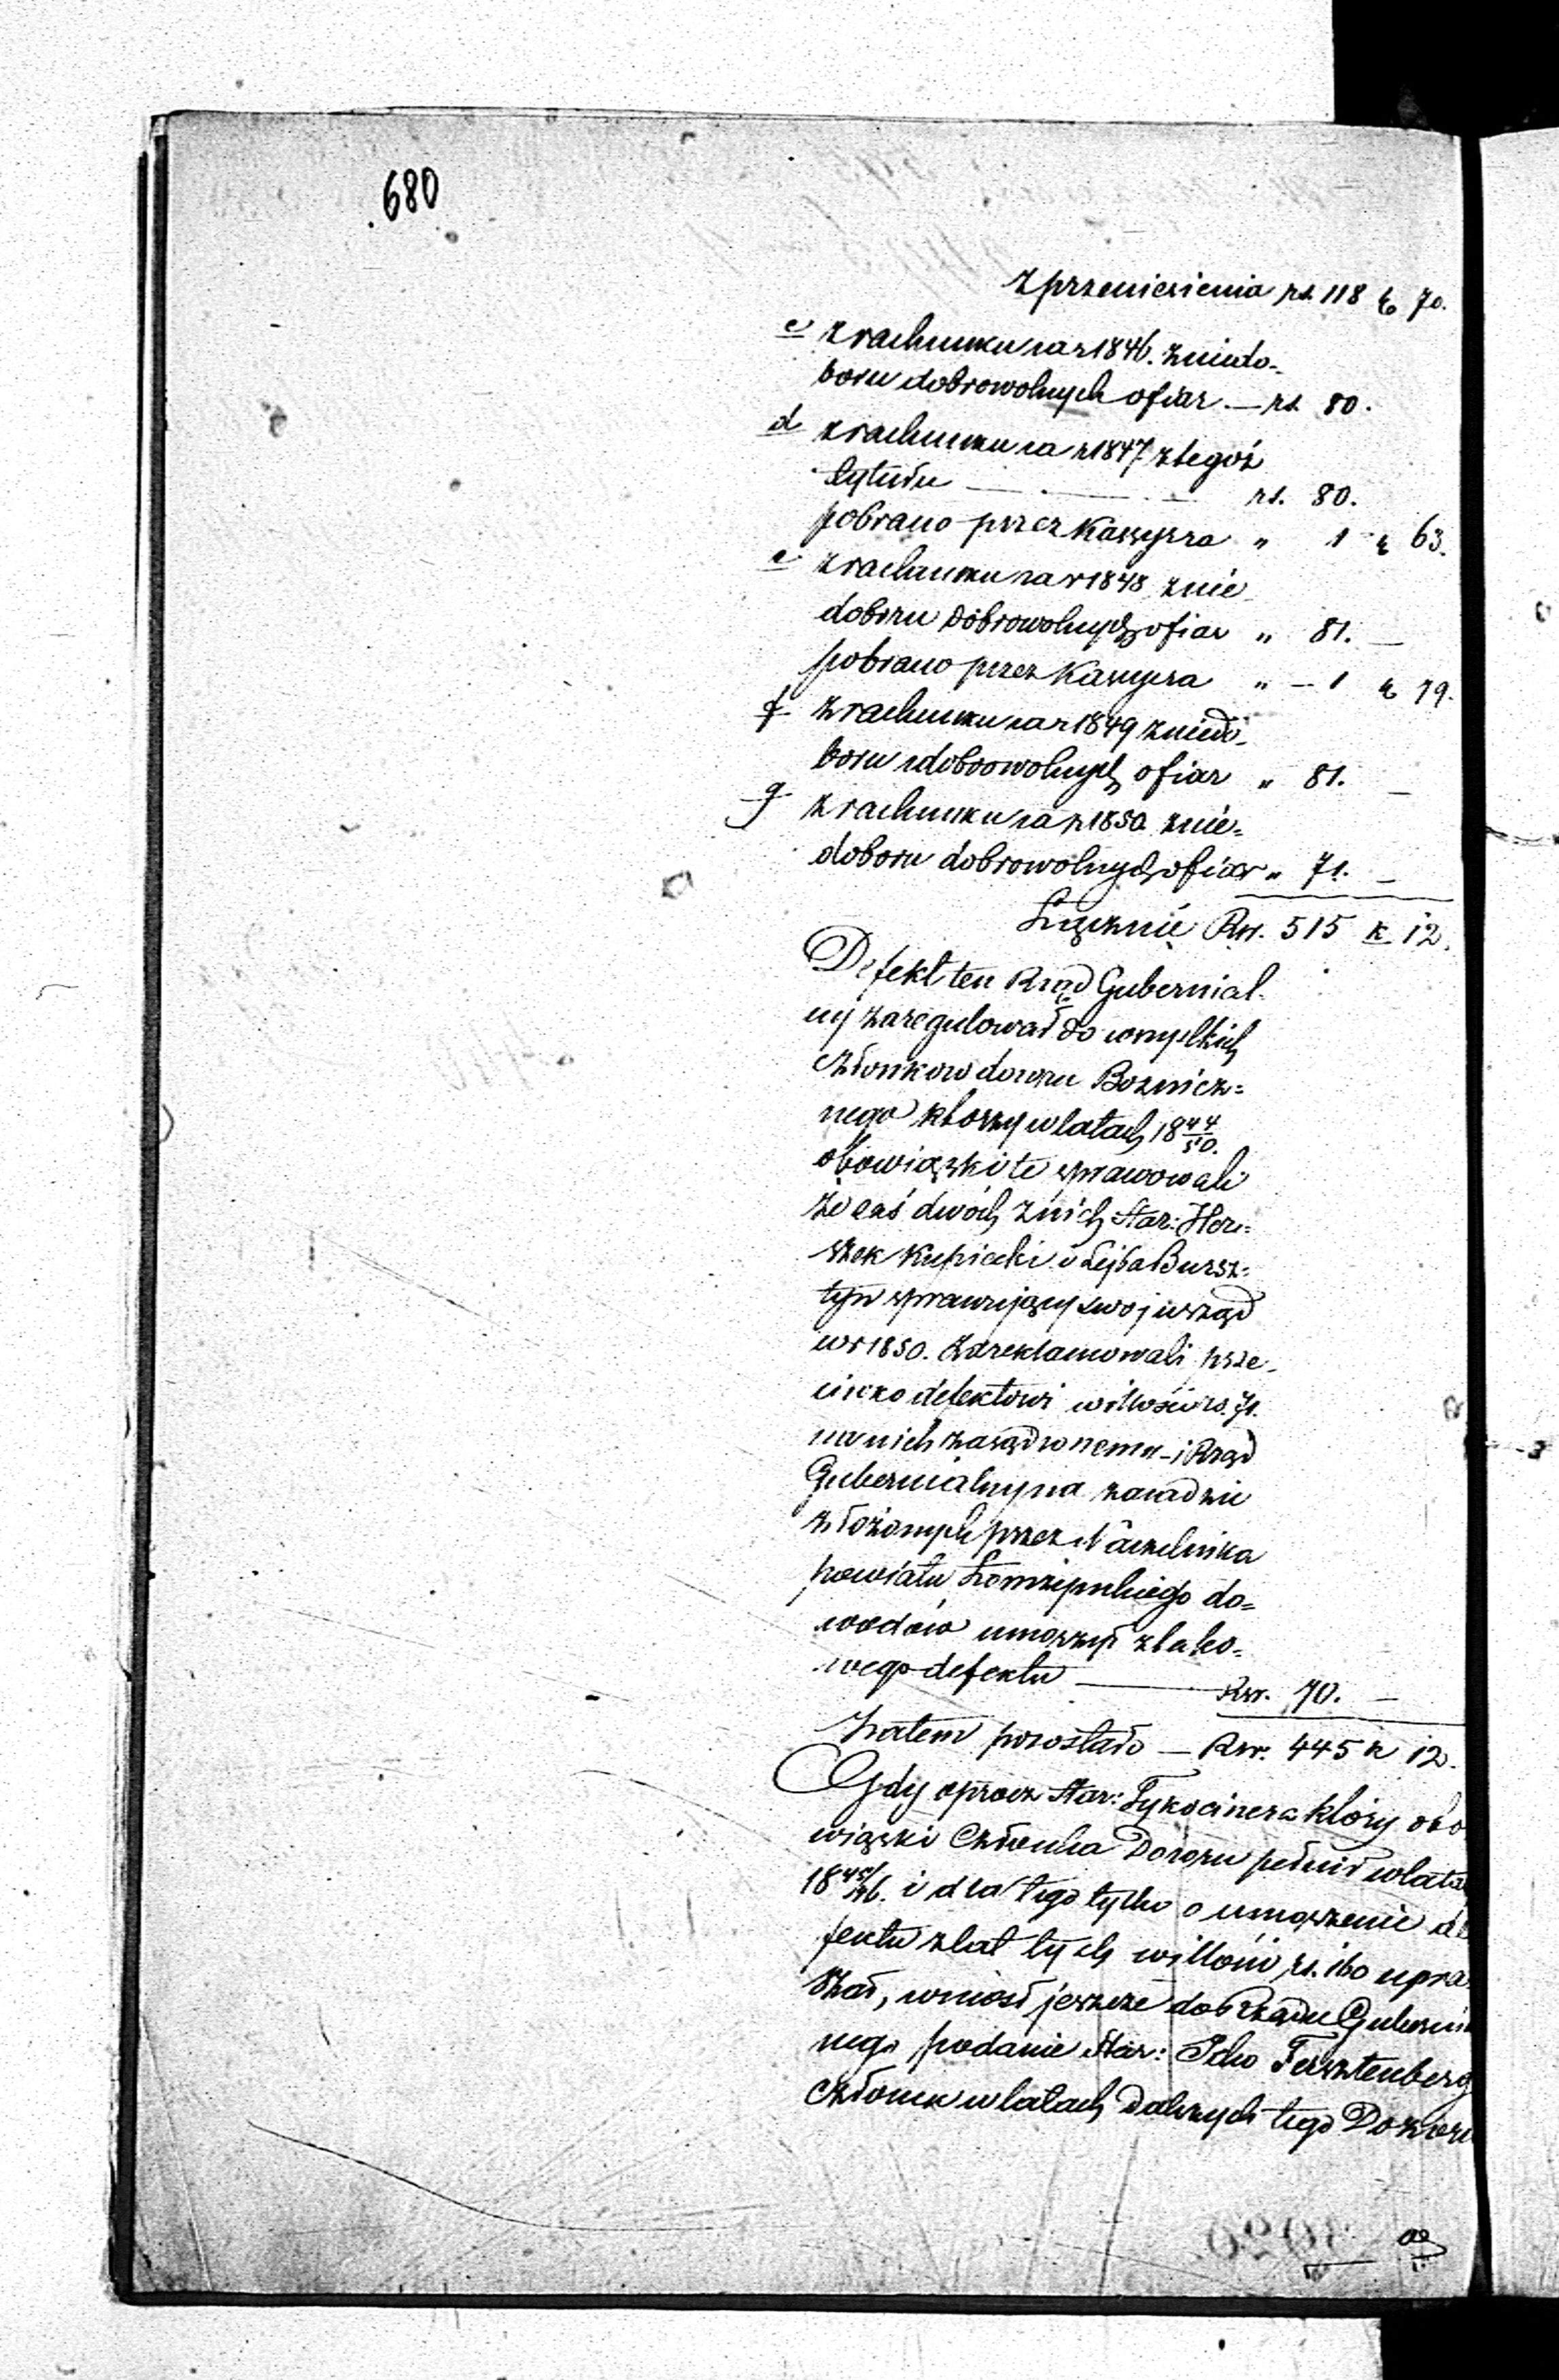 680
z przeniesienia rs. 118 k 70.
c z rachunku za r 1846. z niedo=
boru dobrowolnych ofiar — rs. 80.
d z rachunku za r 1847 z tegoż
tytułu — rs. 80.
pobrano przez Kassyera " 1 k 63.
e z rachunku za r 1848 z nie
doboru dobrowolnych ofiar " 81. —
pobrano przez Kassyera " — 1 k 79.
f z rachunku za r 1849 z niedo-
boru dobrowolnych ofiar " 81. —
g z rachunku za r 1850 z nie=
doboru dobrowolnych ofiar " 71. —
Łącznie Rsr. 515 k 12.
Defekt ten Rząd Gubernial-
ny zaregulował do wszystkich
członkow dozoru Boznicz=
nego ktorzy w latach 1844/50.
obowiązki te sprawowali
że zaś dwóch z nich Star: Her=
szek Kupiecki i Lejba Bursz=
tyn sprawujący swoj urząd
w r 1850. zareklamowali prze-
ciwko defektowi w ilości rs. 71.
na nich zasądzonemu - i Rząd
Gubernialny na zasadzie
złożonych przez Naczelnika
powiatu Łomzynskiego do=
wodów umorzył z tako=
wego defektu — Rsr. 70. —
Zatem pozostało — Rsr. 445 k 12.
Gdy oprocz Star: Tykocinera ktory obo
wiązki Członka Dozoru pełnił w lata
1845/46. i dla tego tylko o umorzenie de
fektu z lat tych w ilości rs. 160 upra
szał, wniosł jeszcze do Rządu Guberni
nego podanie Star: Icko Fersztenberg
członek w latach dalszych tego Dozoru